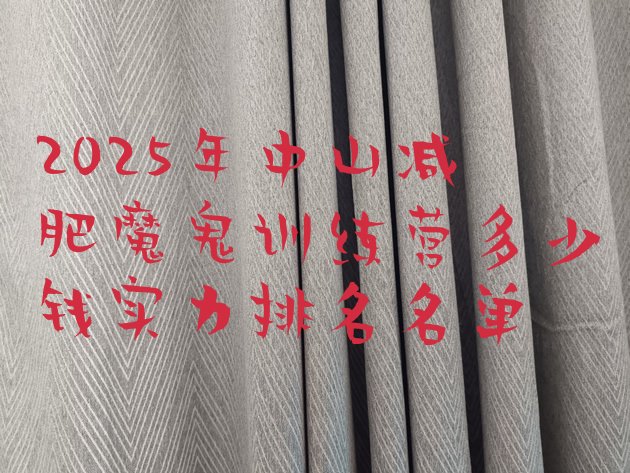 2025年中山减
肥魔鬼训练营多少
钱实力排名名单